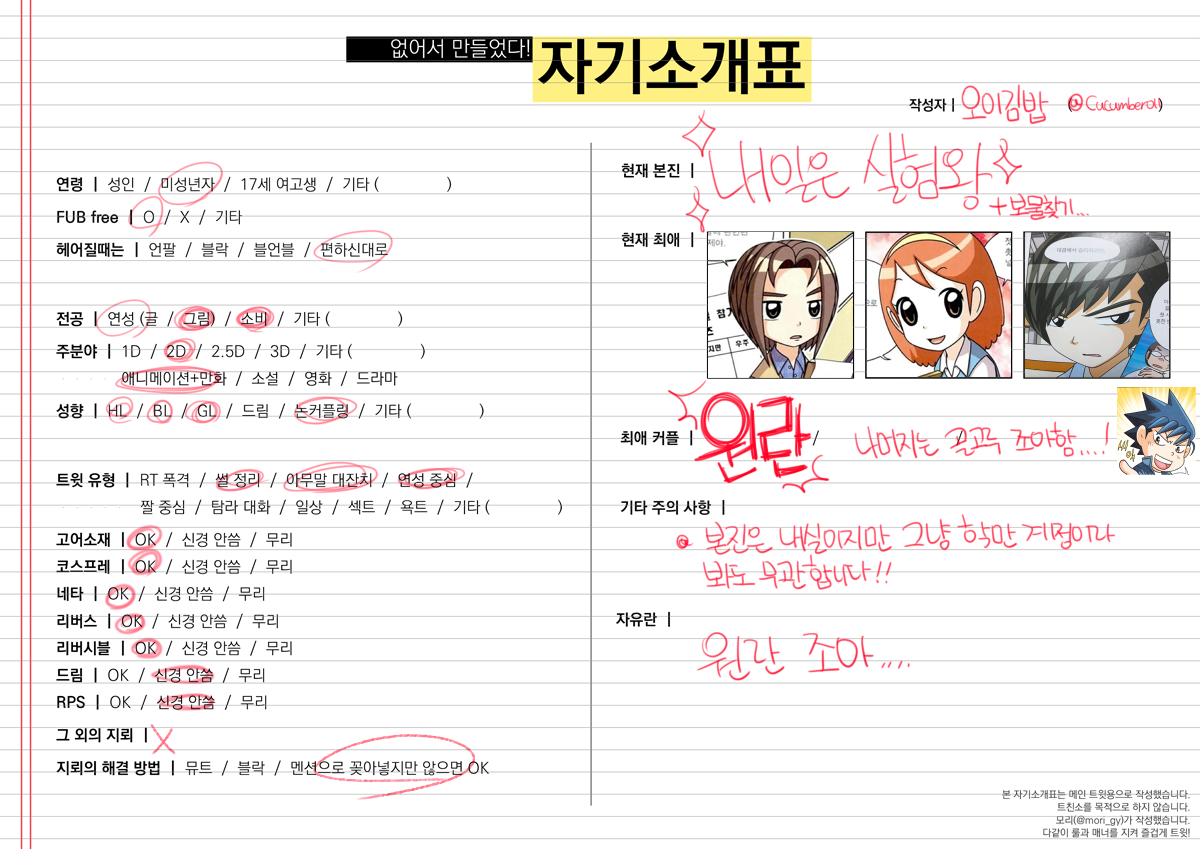 없어서 만들었다! 자기소개표
작성자 | 오이김밥 (@Cucumberoll)
연령 | 성인 / 미성년자 / 17세 여고생 / 기타 ( )
FUB free | O / X / 기타
헤어질때는 | 언팔 / 블락 / 블언블 / 편하신대로
전공 | 연성 (글 / 그림) / 소비 / 기타 ( )
주분야 | 1D / 2D / 2.5D / 3D / 기타 ( )
애니메이션+만화 / 소설 / 영화 / 드라마
성향 | HL / BL / GL / 드림 / 논커플링 / 기타 ( )
트윗 유형 | RT 폭격 / 썰 정리 / 아무말 대잔치 / 연성 중심 /
짤 중심 / 탐라 대화 / 일상 / 섹트 / 욕트 / 기타 ( )
고어소재 | OK / 신경 안씀 / 무리
코스프레 | OK / 신경 안씀 / 무리
네타 | OK / 신경 안씀 / 무리
리버스 | OK / 신경 안씀 / 무리
리버시블 | OK / 신경 안씀 / 무리
드림 | OK / 신경 안씀 / 무리
RPS | OK / 신경 안씀 / 무리
그 외의 지뢰 | X
지뢰의 해결 방법 | 뮤트 / 블락 / 멘션으로 꽂아넣지만 않으면 OK
현재 본진 | 내일은 실험왕
+보물찾기...
현재 최애 |
제야.
참
즈
지만
우주
최애 커플 | 원란 / 나머지는 골고루 조아함...!
기타 주의 사항 |
본진은 내실이지만 그냥 학만 계정이라
봐도 무관합니다!!
자유란 |
원란 조아....
본 자기소개표는 메인 트윗용으로 작성했습니다.
트친소를 목적으로 하지 않습니다.
모리(@mori_gy)가 작성했습니다.
다같이 룰과 매너를 지켜 즐겁게 트윗!